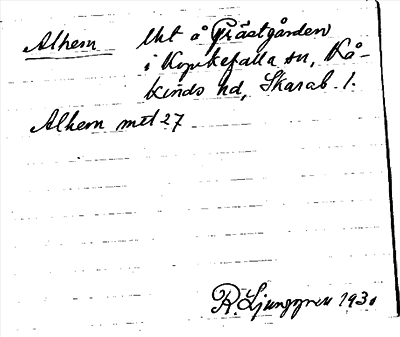 Alhem lht å Prästgården
i Korskefalla sn, Kå-
kinds hd, Skarab. l.
Alhem mtl 27
R. Ljunggren 1930